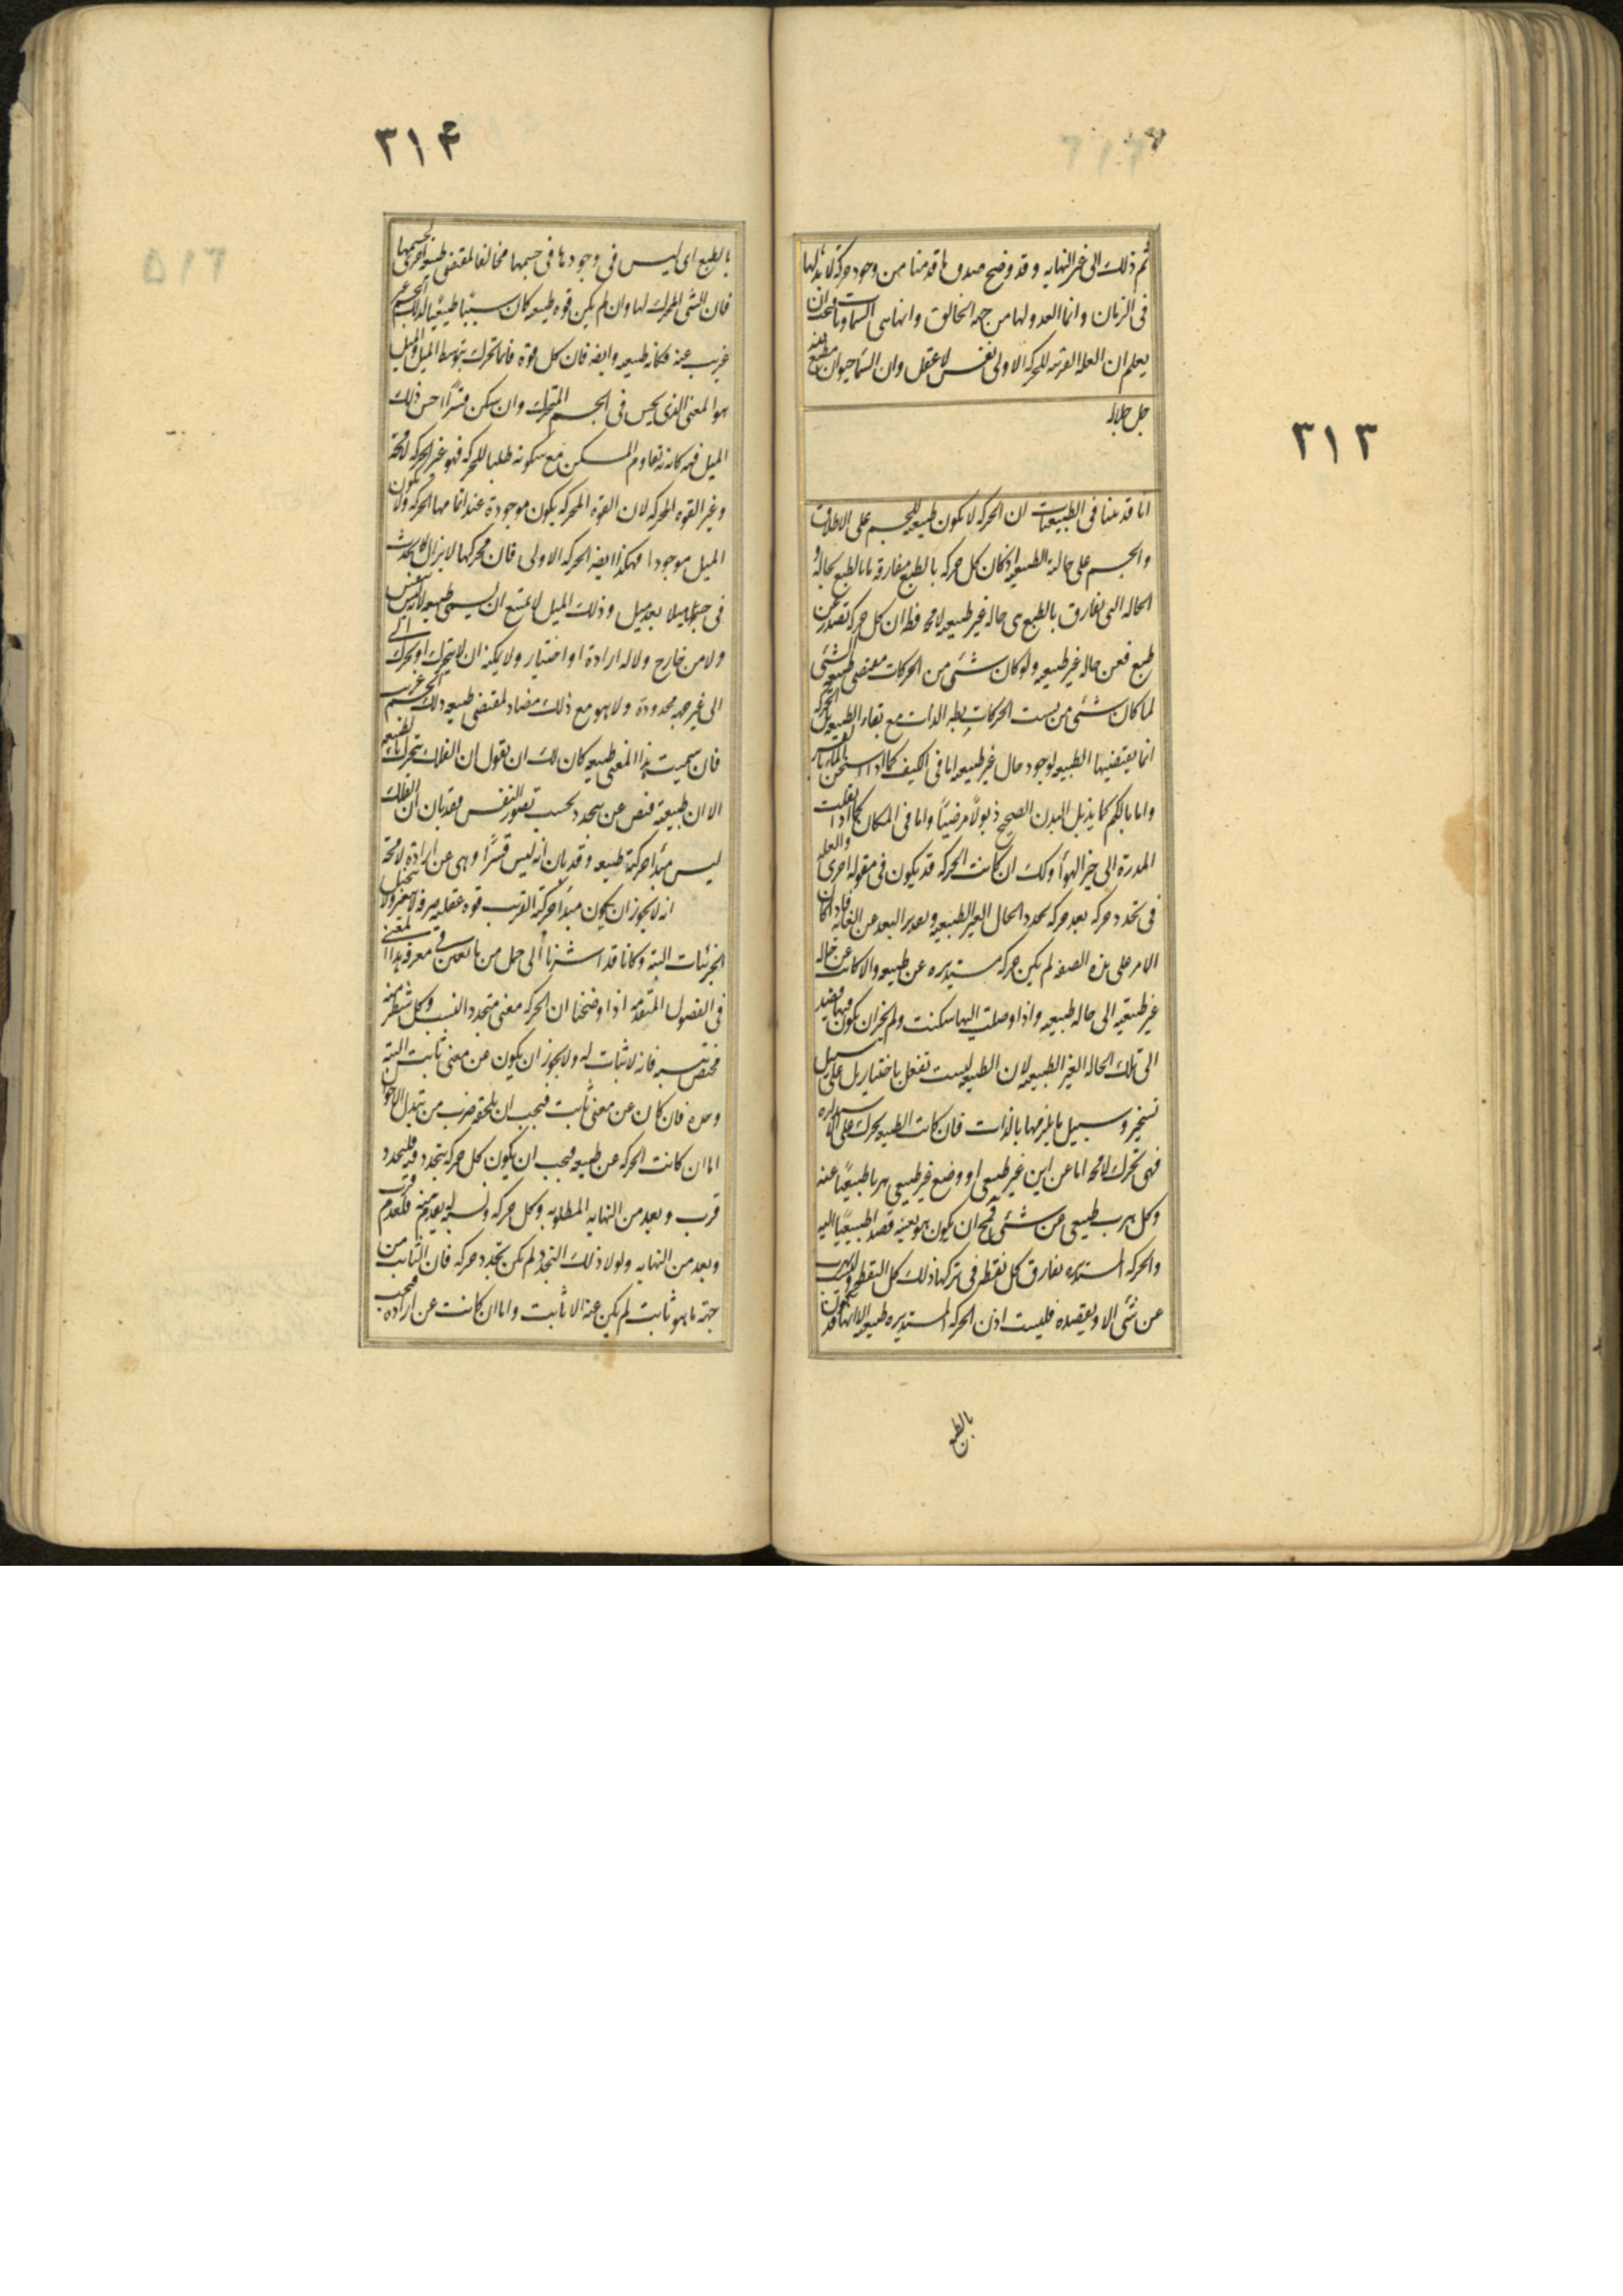 ٣١٣
ثم ذلك الى غير النهايه و قد وضح صدق ما قدمنا من وجود حركة لا بدء لها
فى الزمان وانما البدو لها من جهه الخالق وانها هى السماويات
يعلم ان العله القريبه للحركه الاولى نفس لا عقل وان السماء حيوان مطيع لله
جل جلاله
انا قد بينا فى الطبيعيات ان الحركه لا يكون طبيعيه للجسم على الاطلاق
والجسم على حالته الطبيعيه اذ كان كل حركه بالطبع مفارقه ما بالطبع لحاله و
الحاله التى يفارق بالطبع هى حاله غير طبيعيه لا محه فظ ان كل حركه تصدر عن
طبع فعن حاله غير طبيعيه ولو كان شئ من الحركات مقتضى طبيعه الشئ
لما كان شئ من نسب الحركات بطله الذات مع بقاء الطبيعه بل الحركه
انما يقتضيها الطبيعه لوجود حال غير طبيعيه اما فى الكيف كما اذا استسخن الماء بالقسر
واما بالكم كما يذبل البدن الصحيح ذبولا مرضيًا واما فى المكان كما اذا نقلت
المدرة الى حيز الهوأ وكك ان كانت الحركه قد يكون فى مقوله اخرى والعله
فى تجدد حركه بعد حركه تجدد الحال الغير الطبيعيه وتقدير البعد عن الغايه فاذا كان
الامر على هذه الصفه لم يكن حركه مستديره عن طبيعه والا كانت عن حاله
غير طبيعيه الى حاله طبيعيه واذا وصلت اليها سكنت ولم يجز ان يكون فيها بعينها قصد
الى تلك الحاله الغير الطبيعيه لان الطبيعه ليست تفعل باختيار بل على سبيل
تسخير وسبيل ما يلزمها بالذات فان كانت الطبيعه يحرك على الاستداره
فهى تحرك لا محه اما عن اين غير طبيعى او وضع غير طبيعى هربا طبيعيًا عنه
وكل هرب طبيعى عن شئ فمح ان يكون هو بعينه قصدا طبيعيًا اليه
والحركه المستديره يفارق كل نقطه فى تركها ذلك كل النقطه وليس تهرب
عن شئ الا ويقصده فليست اذن الحركه المستديره طبيعيه الا انها قد يكون
بالطبع
٣١۴
بالطبع اى ليس فى وجودها فى جسمها مخالفا لمقتضى طبيعه اخرى لجسمها
فان الشئ المحرك لها وان لم يكن قوه طبيعيه كان سببًا طبيعيًا لذلك الجسم غير
غريب عنه فكانه طبيعه وايضه فان كل قوة فانما تحرك بتوسط الميل والميل
هو المعنى الذى يحس فى الجسم المتحرك وان سكن قسرًا احس ذلك
الميل فيه كانه يقاوم المسكن مع سكونه طلبا للحركه فهو غير الحركه لا محة
وغير القوه المحركه لان القوه المحركه يكون موجودة عند اتمامها الحركه ولا يكون
الميل موجودا فهكذا ايضه الحركه الاولى فان محركها لا يزال يحدث
فى جسمها ميلا بعد ميل وذلك الميل لا يمتنع ان يسمى طبيعه لانه ليس بنفس
ولا من خارج ولا له ارادة او اختيار ولا يمكنه ان لا يتحرك او يحرك
الى غير جهه محدودة ولا هو مع ذلك مضاد لمقتضى طبيعه ذلك الجسم غريب
فان سميت هذا المعنى طبيعه كان لك ان تقول ان الفلك يتحرك بالطبيعه
الا ان طبيعته فيض عن نفس تجدد بحسب تصور النفس فقد بان ان الفلك
ليس مبدأ حركته طبيعه وقد بان انه ليس قسرًا وهى عن ارادة لا محة
انه لا يجوز ان يكون مبدأ حركته القريب قوه عقليه صرفه لا يتغير ولا يتخيل
الجزئيات البته وكانا قد اشرنا الى جمل مما يعين فى معرفه هذا المعنى
فى الفصول المتقدمه اذا وضحنا ان الحركه معنى متجدد النسب وكل شطر منه
مختص بنسبه فانه لا ثبات له ولا يجوز ان يكون عن معنى ثابت البته
وحده فان كان عن معنى ثابت فيجب ان يلحقه ضرب من تبدل الاحوال
اما ان كانت الحركه عن طبيعه فيجب ان يكون كل حركه يتجدد فيه فلتجدد
قرب وبعد من النهايه المطلوبه وكل حركه ونسبه يعدم منه فلعدم قرب
وبعد من النهايه ولولا ذلك التجدد لم يكن تجدد حركه فان الثابت من
جهة ما هو ثابت لم يكن عنه الا ثابت واما ان كانت عن اراده فيجب